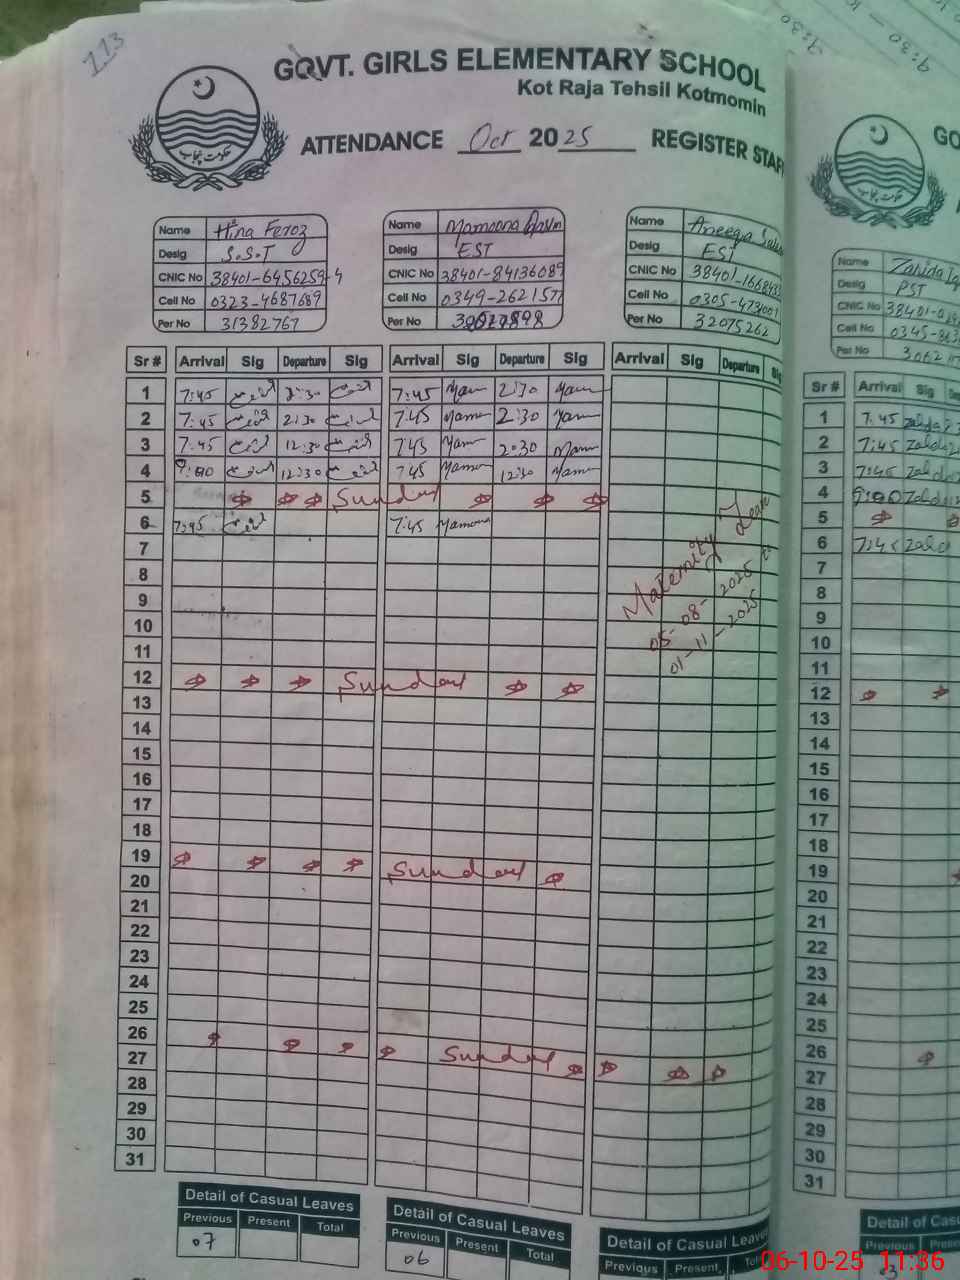 113
GOVT. GIRLS ELEMENTARY SCHOOL
Kot Raja Tehsil Kotmomin
حکومت پنجاب
ATTENDANCE Oct 2025 REGISTER STAFF
Name Hina Feroz
Desig S.S.T
CNIC No 38401-6456259-4
Cell No 0323-4687689
Per No 31382767
Name Mamoona
Desig EST
CNIC No 38401-84136089
Cell No 0349-262157
Per No
Name Aneeqa
Desig EST
CNIC No 38401-1668433
Cell No 0305-4731001
Per No 32075262
Name Zahida
Desig PST
CNIC No 38401-0
Cell No 0345-863
Per No 3062
Sr # Arrival Sig Departure Sig Arrival Sig Departure Sig Arrival Sig Departure Sig Sr # Arrival Sig
1 7:45 2:30 7:45 Mam 2:30 Mam 1 7:45 Zahida
2 7:45 2:30 7:45 Mamo 2:30 Mam 2 7:45 Zahida
3 7:45 12:30 7:45 Mam 2:30 Mam 3 7:45 Zahida
4 9:00 12:30 7:45 Mamo 12:30 Mamo 4 9:00 Zahida
5 Sunday 5
6 7:45 7:45 Mamoona 6 7:45 Zahid
7 7
8 8
9 9
10 10
11 11
12 Sunday 12
13 13
14 14
15 15
16 16
17 17
18 18
19 Sunday 19
20 20
21 21
22 22
23 23
24 24
25 25
26 Sunday 26
27 27
28 28
29 29
30 30
31 31
Maternity Leave
05-08-2025 to
01-11-2025
Detail of Casual Leaves
Previous Present Total
07
Detail of Casual Leaves
Previous Present Total
06
Detail of Casual Leaves
Previous Present
Detail of Cas
Previous Presen
06-10-25 11:36